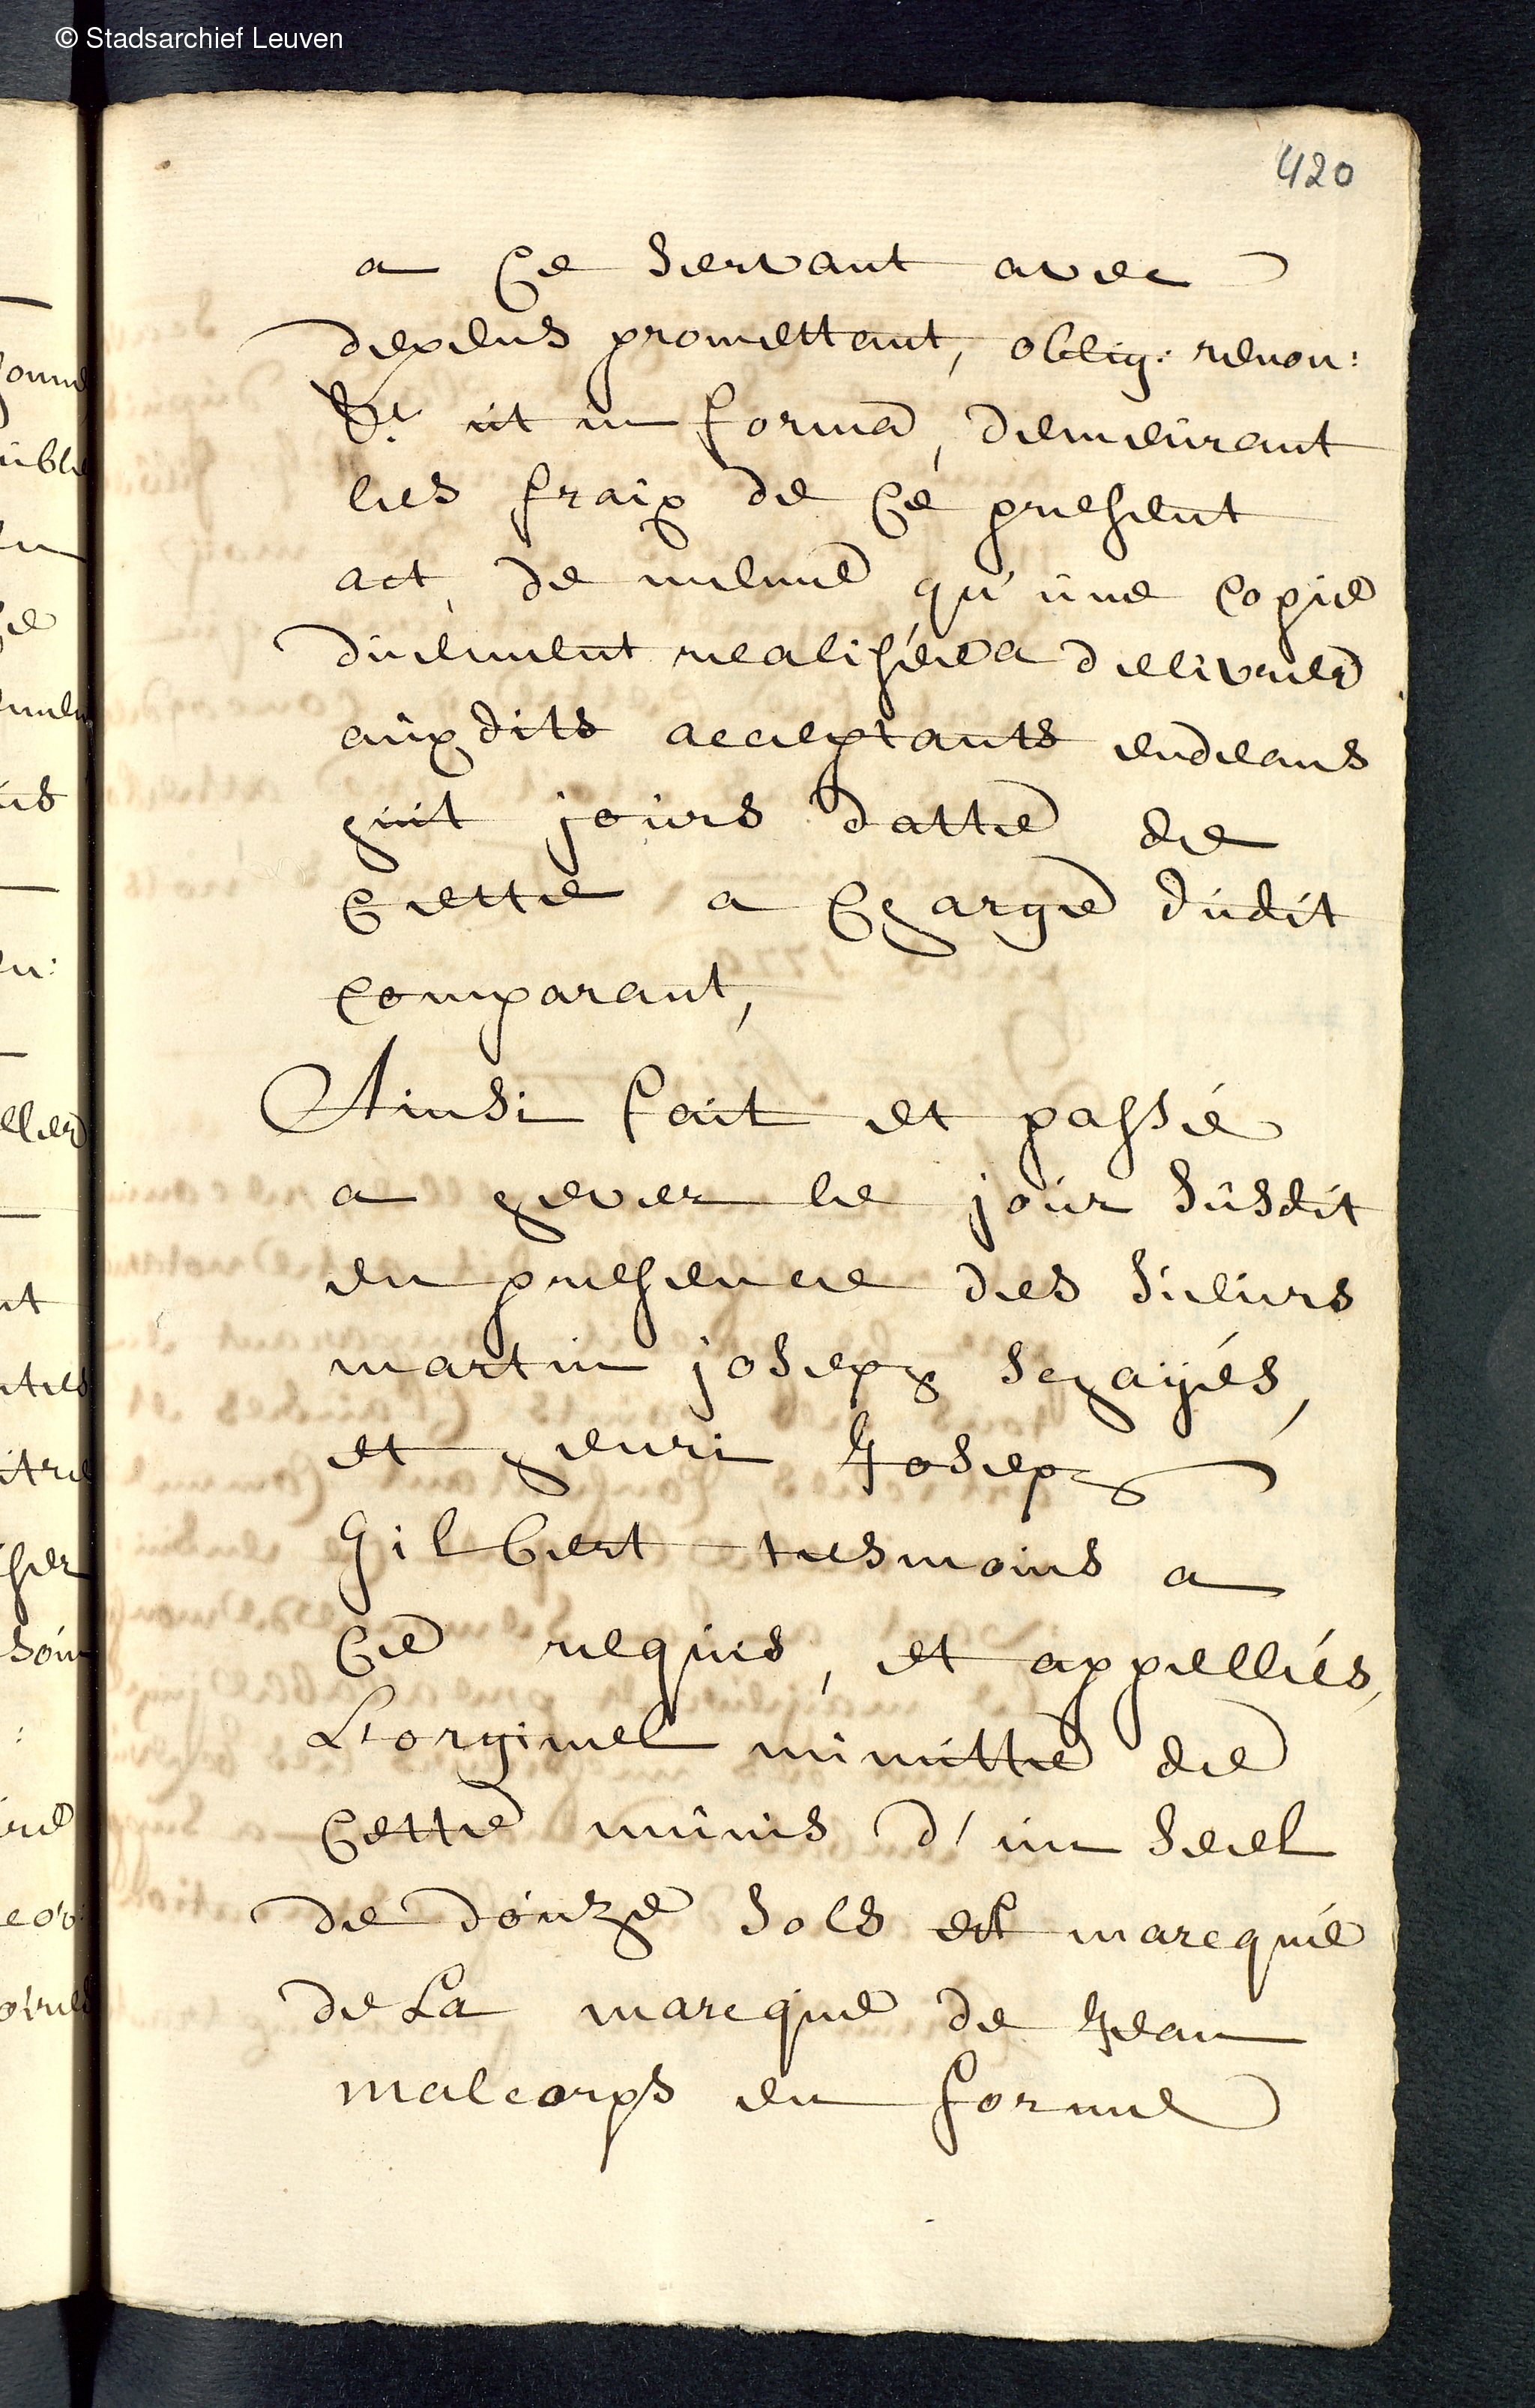 © Stadsarchief Leuven
420
a ce servant avec
depens promettant, oblig: renon:
&ra ut in forma, demeurant
les fraix de ce present
act, de meme qu'une copie
duement realisée a delivrer
auxdits acceptants endeans
huit jours datte de
cette a charge dudit
comparant,
Ainsi fait et passé
a hever le jour susdit
en presence des sieurs
martin joseph schayés,
et henri Joseph
Gilbert tesmoins a
ce requis, et appellés,
L'orginel minutte de
cette munis d'un seel
de douze sols est marcqué
de La marcque de Jean
malcorps en forme